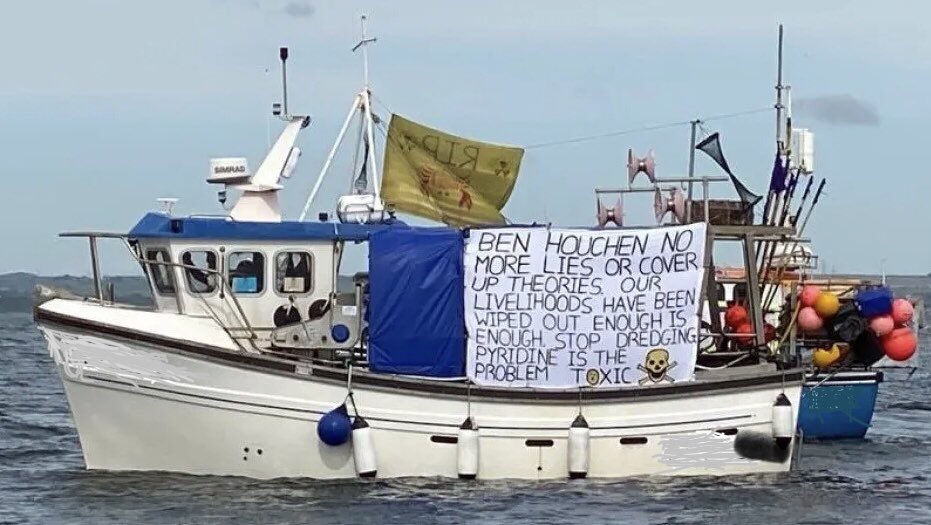 SIMRAD
RIP
BEN HOUCHEN NO
MORE LIES OR COVER
UP THEORIES. OUR
LIVELIHOODS HAVE BEEN
WIPED OUT ENOUGH IS
ENOUGH. STOP DREDGING
PYRIDINE IS THE
PROBLEM TOXIC